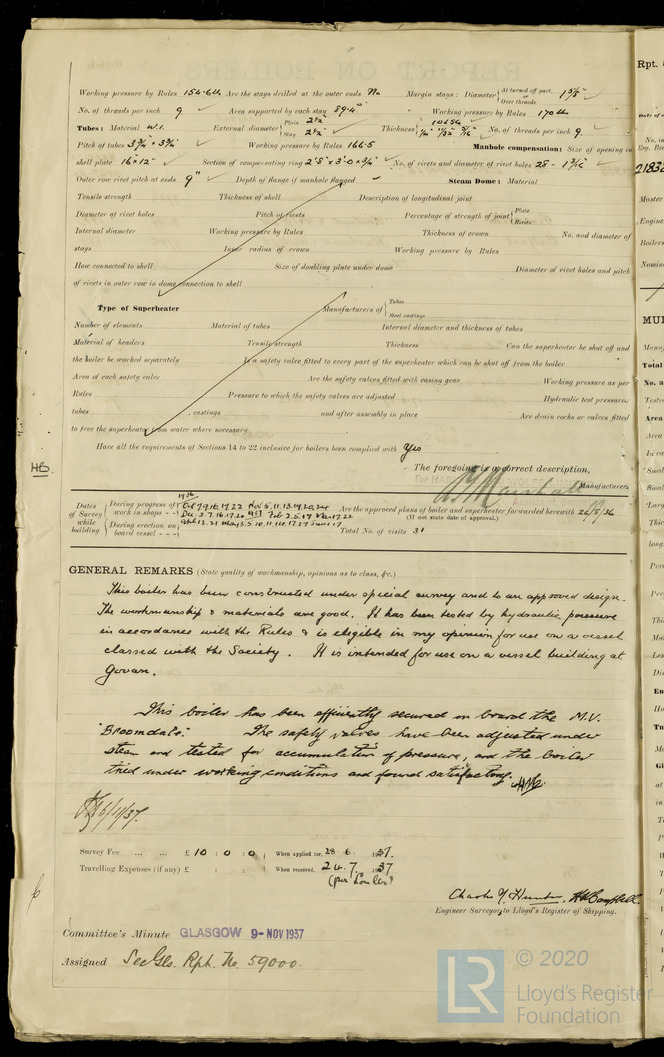 Working pressure by Rules 154.6 lb Are the stays drilled at the outer ends No Margin stays: Diameter { At turned off part, or Over threads 1 3/8" ✓
No. of threads per inch 9 ✓ Area supported by each stay 89.4 " Working pressure by Rules 170 lb
Tubes: Material W.I. External diameter { Plain 2½" Stay 2½" ✓ Thickness { No. of threads per inch 9. ✓
Pitch of tubes 3¾" × 3¾" ✓ Working pressure by Rules 166.5 Manhole compensation: Size of opening in
shell plate 16" × 12" ✓ Section of compensating ring 2'8" × 3'0 × ¾" ✓ No. of rivets and diameter of rivet holes 28 - 1 3/16" ✓
Outer row rivet pitch at ends 9" ✓ Depth of flange if manhole flanged ✓ Steam Dome: Material
Tensile strength Thickness of shell Description of longitudinal joint
Diameter of rivet holes Pitch of rivets Percentage of strength of joint { Plate Rivets
Internal diameter Working pressure by Rules Thickness of crown No. and diameter of
stays Inner radius of crown Working pressure by Rules
How connected to shell Size of doubling plate under dome Diameter of rivet holes and pitch
of rivets in outer row in dome connection to shell
Type of Superheater Manufacturers of { Tubes Steel castings
Number of elements Material of tubes Internal diameter and thickness of tubes
Material of headers Tensile strength Thickness Can the superheater be shut off and
the boiler be worked separately Is a safety valve fitted to every part of the superheater which can be shut off from the boiler
Area of each safety valve Are the safety valves fitted with easing gear Working pressure as per
Rules Pressure to which the safety valves are adjusted Hydraulic test pressure:
tubes , castings and after assembly in place Are drain cocks or valves fitted
to free the superheater from water where necessary
Have all the requirements of Sections 14 to 22 inclusive for boilers been complied with Yes
The foregoing is a correct description,
Manufacturers
Dates of Survey while building { During progress of work in shops - - 1936 Oct 7.9.16.19.22 Nov 5.11.13.19.20.24 Dec. 3.7.16.17.20 1937 Feb 2.5.17 Mar 17.22
During erection on board vessel - - - April 12.21 May 3.5.10.11.14.17.27 June 17
Are the approved plans of boiler and superheater forwarded herewith 26/8/36
(If not state date of approval.)
Total No. of visits 31
GENERAL REMARKS (State quality of workmanship, opinions as to class, &c.)
This boiler has been constructed under special survey and to an approved design.
The workmanship & materials are good. It has been tested by hydraulic pressure
in accordance with the Rules & is eligible in my opinion for use on a vessel
classed with the Society. It is intended for use on a vessel building at
Govan.
This boiler has been efficiently secured on board the M.V.
"Broomdale". The safety valves have been adjusted under
steam and tested for accumulation of pressure, and the boiler
tried under working conditions and found satisfactory.
6/11/37.
Survey Fee ... ... £ 10 : 0 : 0 When applied for, 28.6.1937.
Travelling Expenses (if any) £ : : When received, 24.7.1937
Engineer Surveyor to Lloyd's Register of Shipping.
Committee's Minute GLASGOW 9-NOV 1937
Assigned See Gls. Rpt. No. 59000.
© 2020
LR
Lloyd's Register
Foundation
Rpt.
Date of
No. in
Reg. Book
2183
Master
Engine
Boilers
MUL
Total
No. a
Area